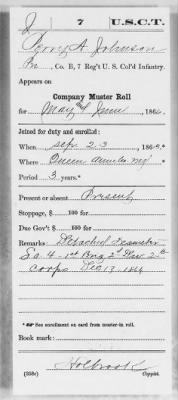 J 7 U.S.C.T.
Perry A Johnson
Pvt., Co. B, 7 Reg't U. S. Col'd Infantry.
Appears on
Company Muster Roll
for May and June, 1865.
Joined for duty and enrolled:
When Sept 23, 1863.*
Where Queen Annes Md
Period 3 years.*
Present or absent Present
Stoppage, $ 100 for
Due Gov't $ 100 for
Remarks: Detached Teamster
S.O. 4 - 1st Brig 2d Div. 25th
Corps Dec 13. 1864
* See enrollment on card from muster-in roll.
Book mark:
Holbrook
(358c) Copyist.